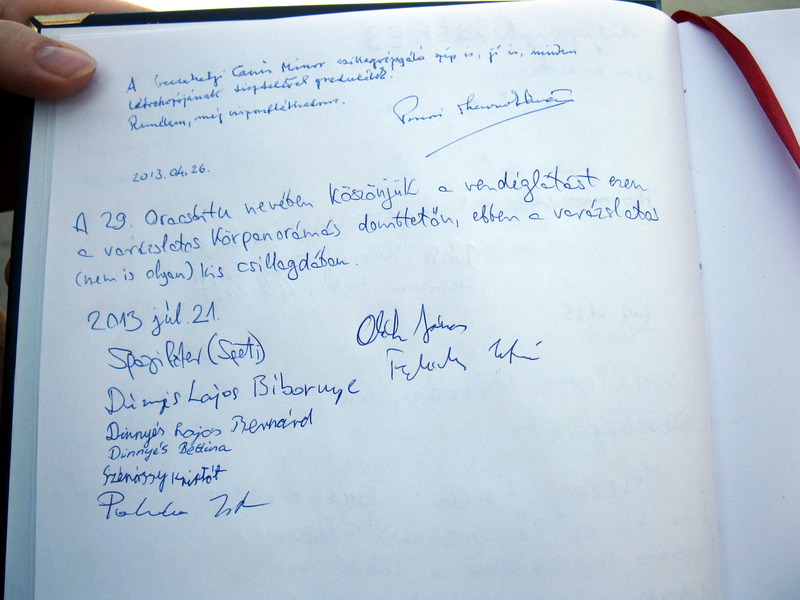 A becsehelyi Canis Minor csillagvizsgáló szép is, jó is, minden
létrehozójának tisztelettel gratulálok!
Remélem, még viszontláthatom.
2013.04.26.
A 29. nevében köszönjük a vendéglátást ezen
a varázslatos körpanorámás dombtetőn, ebben a varázslatos
(nem is olyan) kis csillagdában.
2013 júl. 21.
(Speti)
Lajos
Oláh János
Dinnyés Lajos Bernárd
Dinnyés Bettina
Szénássy Kristóf